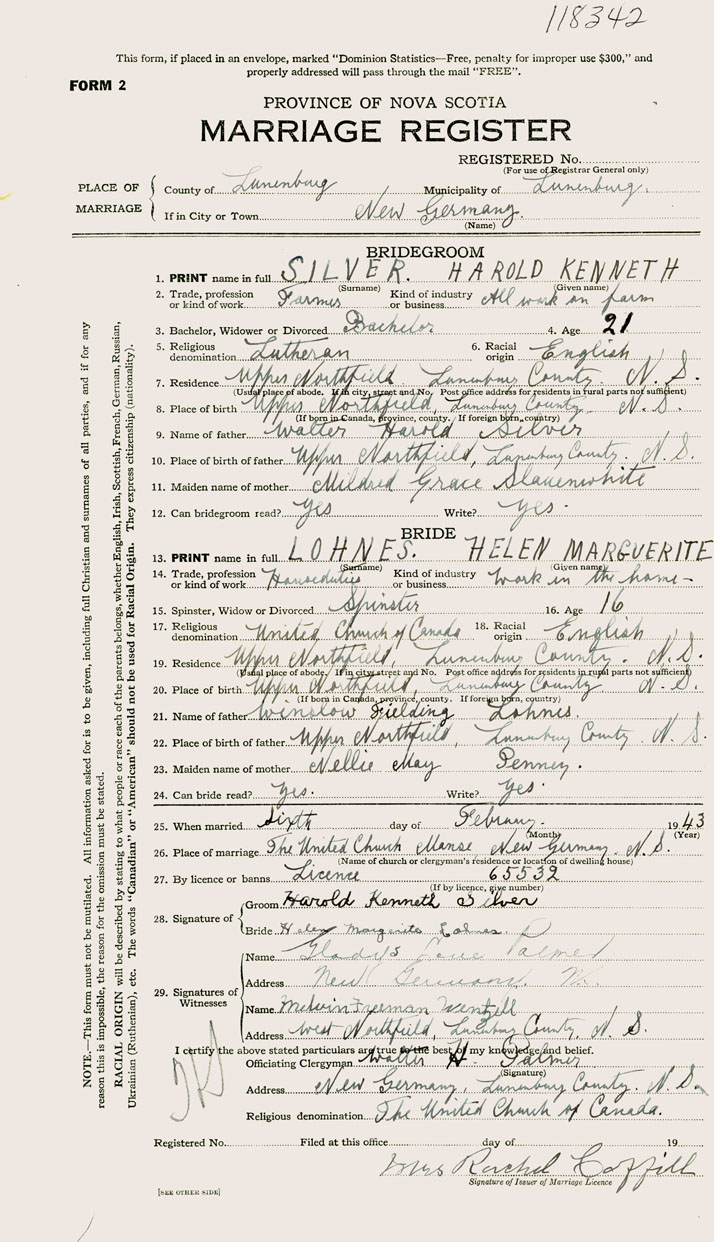 118342
This form, if placed in an envelope, marked "Dominion Statistics—Free, penalty for improper use $300," and
properly addressed will pass through the mail "FREE".
FORM 2
PROVINCE OF NOVA SCOTIA
MARRIAGE REGISTER
REGISTERED No.
(For use of Registrar General only)
PLACE OF MARRIAGE
County of Lunenburg Municipality of Lunenburg.
If in City or Town New Germany.
(Name)
BRIDEGROOM
1. PRINT name in full SILVER. HAROLD KENNETH
(Surname) (Given name)
2. Trade, profession or kind of work Farmer Kind of industry or business All work on farm
3. Bachelor, Widower or Divorced Bachelor 4. Age 21
5. Religious denomination Lutheran 6. Racial origin English
7. Residence Upper Northfield Lunenburg County. N. S.
(Usual place of abode. If in city, street and No. Post office address for residents in rural parts not sufficient)
8. Place of birth Upper Northfield, Lunenburg County. N. S.
(If born in Canada, province, county. If foreign born, country)
9. Name of father Walter Harold Silver
10. Place of birth of father Upper Northfield, Lunenburg County. N. S.
11. Maiden name of mother Mildred Grace Slauenwhite
12. Can bridegroom read? Yes Write? Yes.
BRIDE
13. PRINT name in full LOHNES. HELEN MARGUERITE
(Surname) (Given name)
14. Trade, profession or kind of work Houseduties Kind of industry or business Work in the home-
15. Spinster, Widow or Divorced Spinster 16. Age 16
17. Religious denomination United Church of Canada 18. Racial origin English
19. Residence Upper Northfield, Lunenburg County. N. S.
(Usual place of abode. If in city street and No. Post office address for residents in rural parts not sufficient)
20. Place of birth Upper Northfield, Lunenburg County N. S.
(If born in Canada, province, county. If foreign born, country)
21. Name of father Winslow Fielding Lohnes.
22. Place of birth of father Upper Northfield, Lunenburg County. N. S.
23. Maiden name of mother Nellie May Penney.
24. Can bride read? Yes. Write? Yes.
25. When married Sixth day of February. 1943
(Month) (Year)
26. Place of marriage The United Church Manse, New Germany. N. S.
(Name of church or clergyman's residence or location of dwelling house)
27. By licence or banns Licence 65532
(If by licence, give number)
28. Signature of
Groom Harold Kenneth Silver
Bride Helen Marguerite Lohnes.
29. Signatures of Witnesses
Name Gladys Palmer
Address New Germany, N.
Name Melvin Freeman Wentzell
Address West Northfield, Lunenburg County, N. S.
I certify the above stated particulars are true to the best of my knowledge and belief.
Officiating Clergyman Walter H. Palmer
(Signature)
Address New Germany, Lunenburg County. N. S.
Religious denomination The United Church of Canada.
Registered No. Filed at this office day of 19
Mrs Rachel Coffill
Signature of Issuer of Marriage Licence
[SEE OTHER SIDE]
NOTE.—This form must not be mutilated. All information asked for is to be given, including full Christian and surnames of all parties, and if for any
reason this is impossible, the reason for the omission must be stated.
RACIAL ORIGIN will be described by stating to what people or race each of the parents belongs, whether English, Irish, Scottish, French, German, Russian,
Ukrainian (Ruthenian), etc. The words "Canadian" or "American" should not be used for Racial Origin. They express citizenship (nationality).